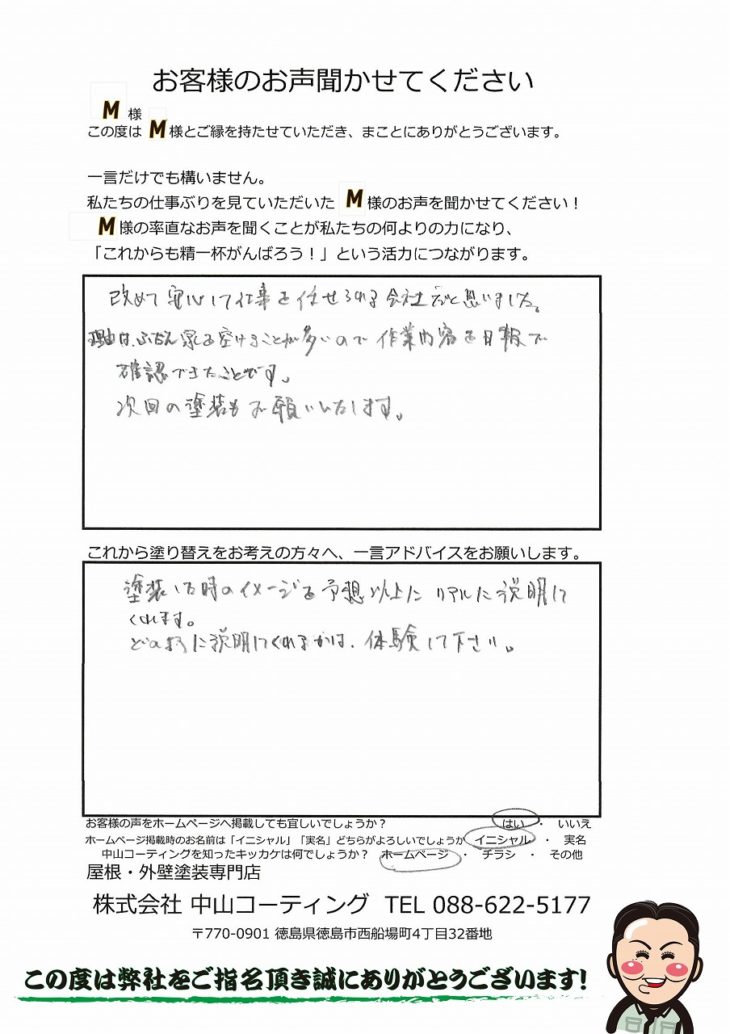 お客様のお声聞かせてください
M 様
この度は M 様とご縁を持たせていただき、まことにありがとうございます。
一言だけでも構いません。
私たちの仕事ぶりを見ていただいた M 様のお声を聞かせてください！
M 様の率直なお声を聞くことが私たちの何よりの力になり、
「これからも精一杯がんばろう！」という活力につながります。
改めて安心して仕事を任せられる会社だと思いました。
理由は、ふだん家を空けることが多いので作業内容を日報で
確認できたことです。
次回の塗装もお願いいたします。
これから塗り替えをお考えの方々へ、一言アドバイスをお願いします。
塗装いる時のイメージを予想以上にリアルに説明して
くれます。
どのように説明してくれるかは、体験して下さい。
お客様の声をホームページへ掲載しても宜しいでしょうか？ はい ・ いいえ
ホームページ掲載時のお名前は「イニシャル」「実名」どちらがよろしいでしょうか イニシャル ・ 実名
中山コーティングを知ったキッカケは何でしょうか？ ホームページ ・ チラシ ・ その他
屋根・外壁塗装専門店
株式会社 中山コーティング TEL 088-622-5177
〒770-0901 徳島県徳島市西船場町4丁目32番地
この度は弊社をご指名頂き誠にありがとうございます!